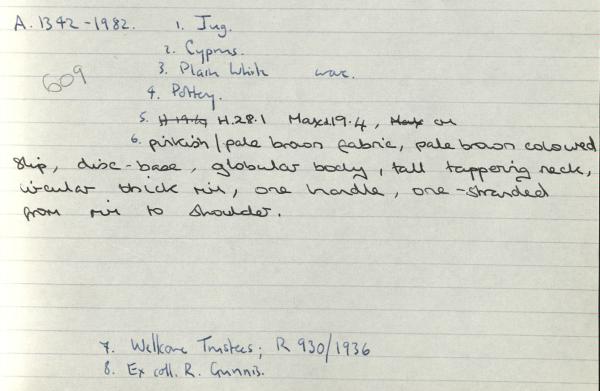 A.1342-1982. 1. Jug.
2. Cyprus.
609
3. Plain White ware.
4. Pottery.
5. H.28.1 Maxd.19.4, cm
6. pinkish/pale brown fabric, pale brown coloured
slip, disc-base, globular body, tall tappering neck,
circular thick rim, one handle, one-stranded
from rim to shoulder.
7. Wellcome Trustees; R 930/1936
8. Ex coll. R. Gunnis.